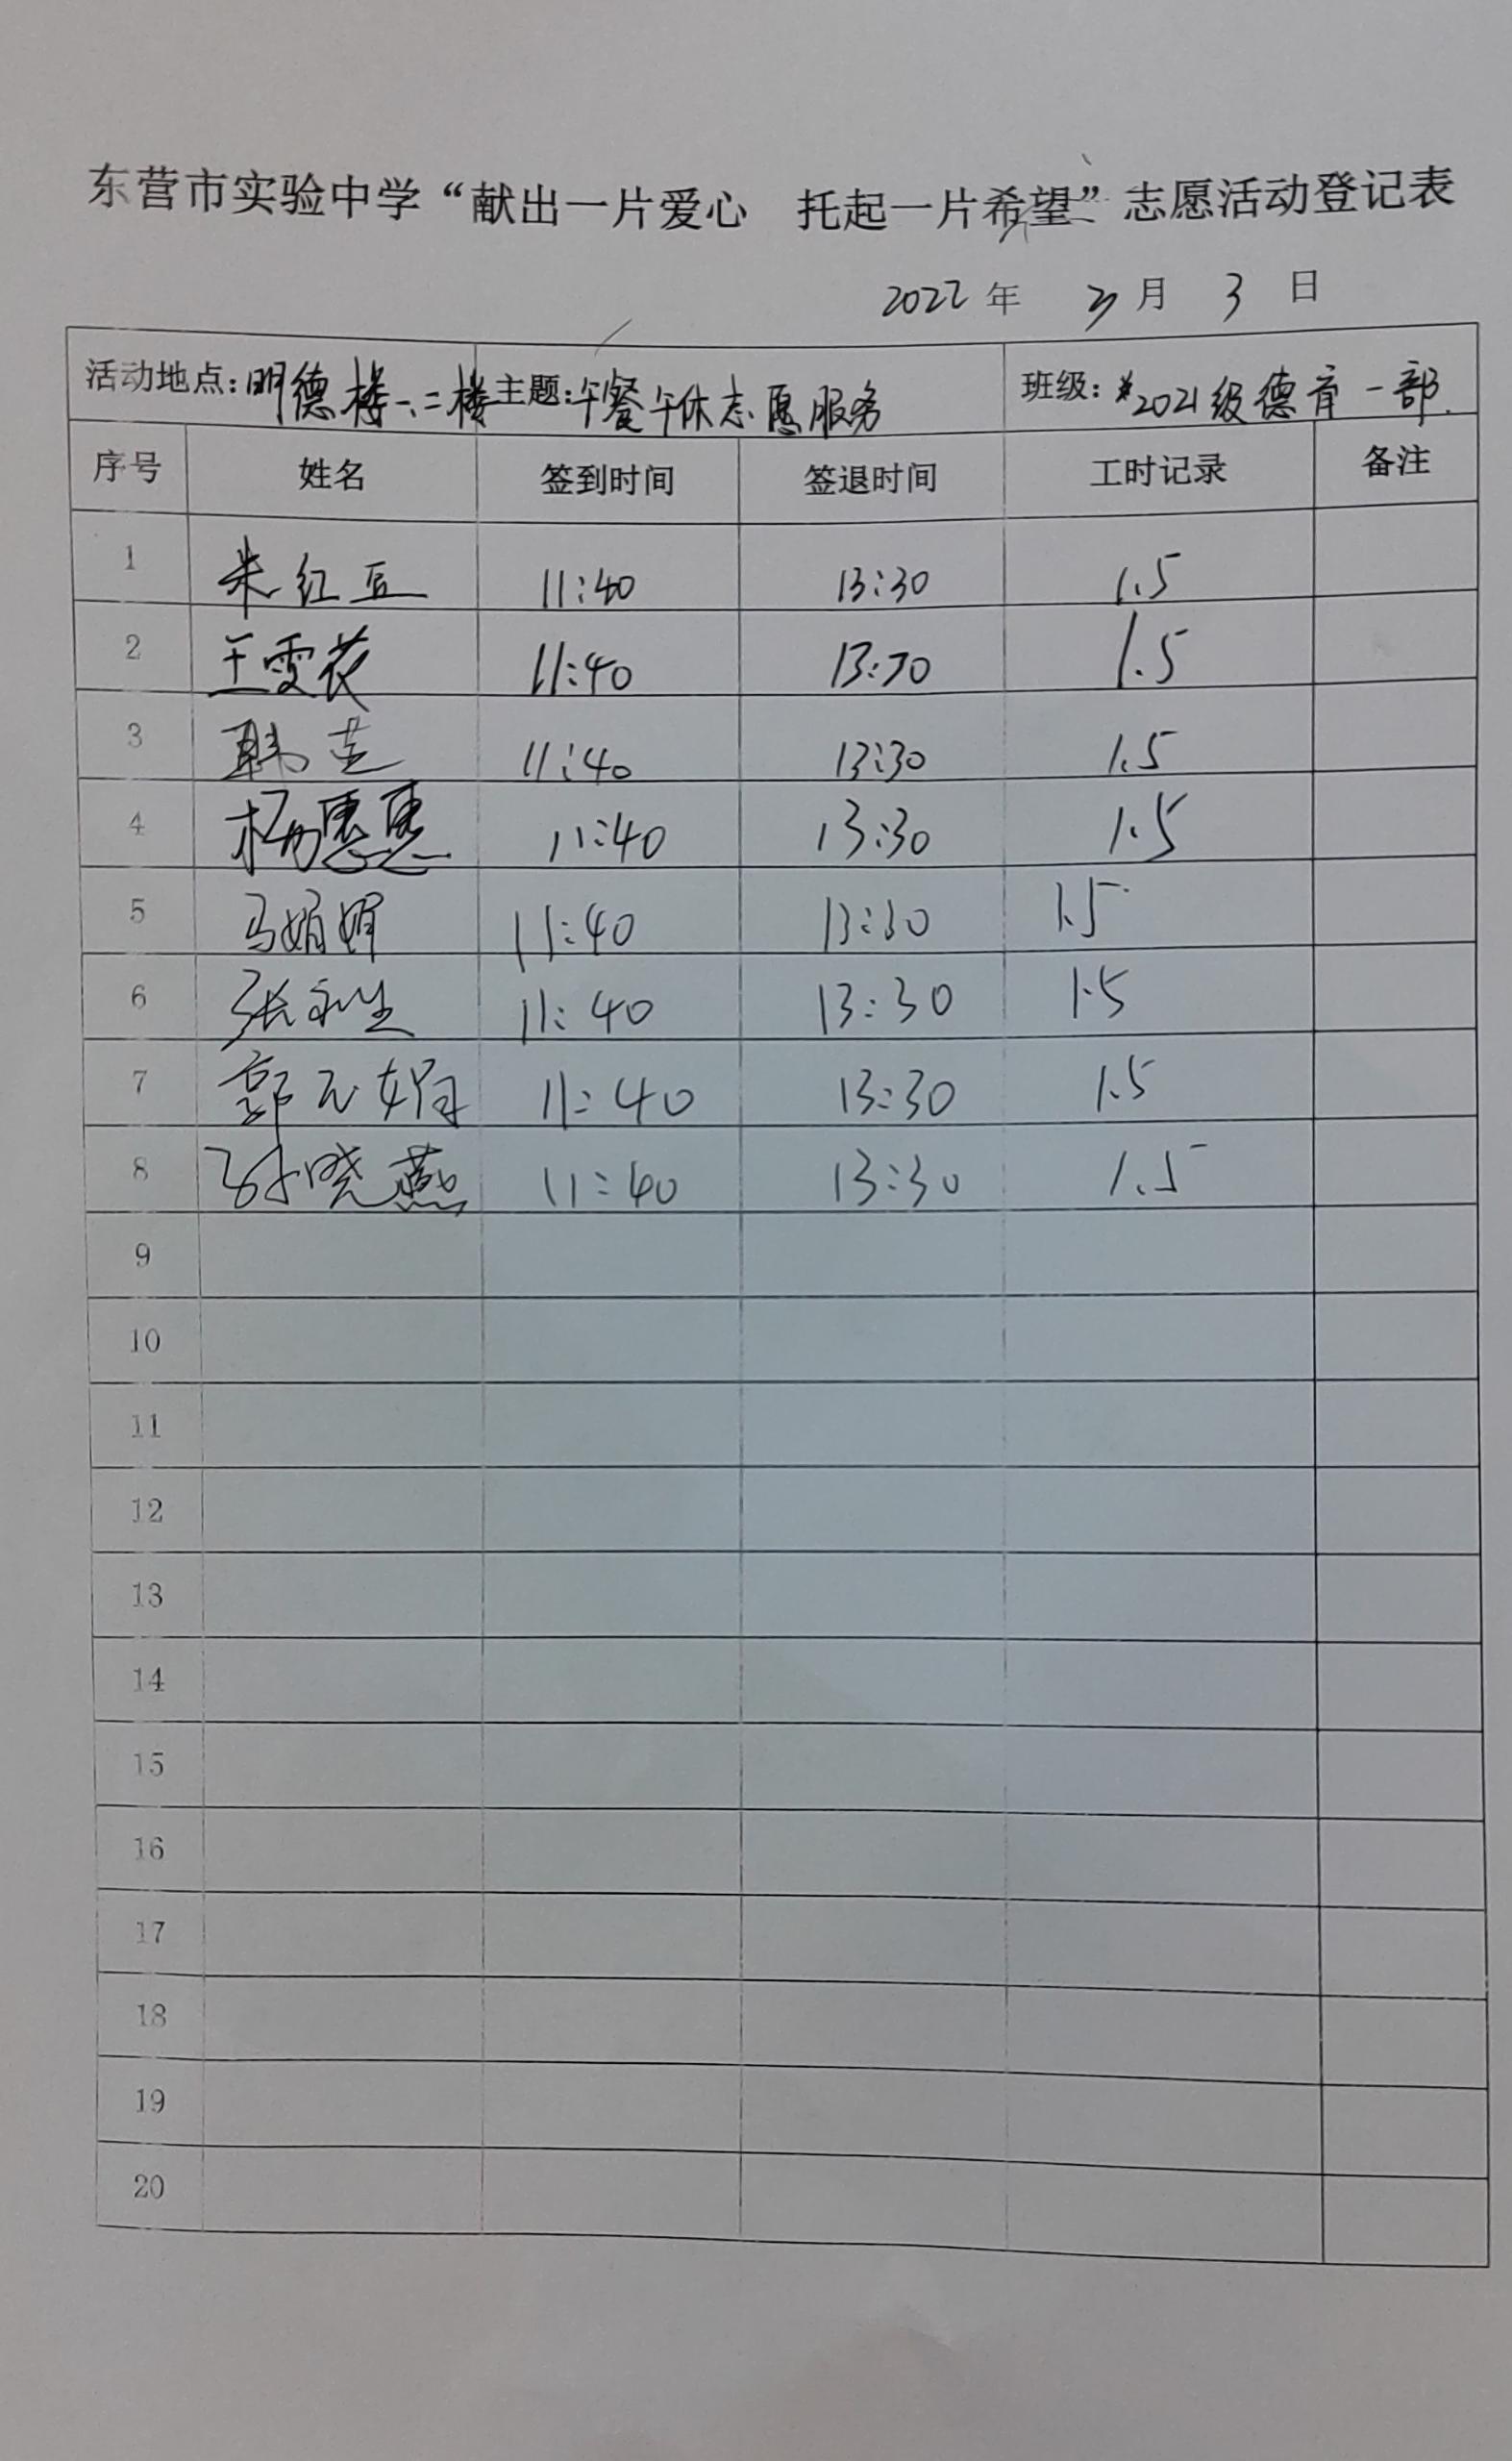 东营市实验中学“献出一片爱心 托起一片希望”志愿活动登记表
2022 年 3 月 3 日
活动地点:明德楼一、二楼 主题:午餐午休志愿服务 班级:2021级德育一部
序号 姓名 签到时间 签退时间 工时记录 备注
1 朱红豆 11:40 13:30 1.5
2 王雪花 11:40 13:30 1.5
3 韩芸 11:40 13:30 1.5
4 杨惠惠 11:40 13:30 1.5
5 马娟娟 11:40 13:30 1.5
6 张永生 11:40 13:30 1.5
7 郭元娟 11:40 13:30 1.5
8 孙晓燕 11:40 13:30 1.5
9
10
11
12
13
14
15
16
17
18
19
20